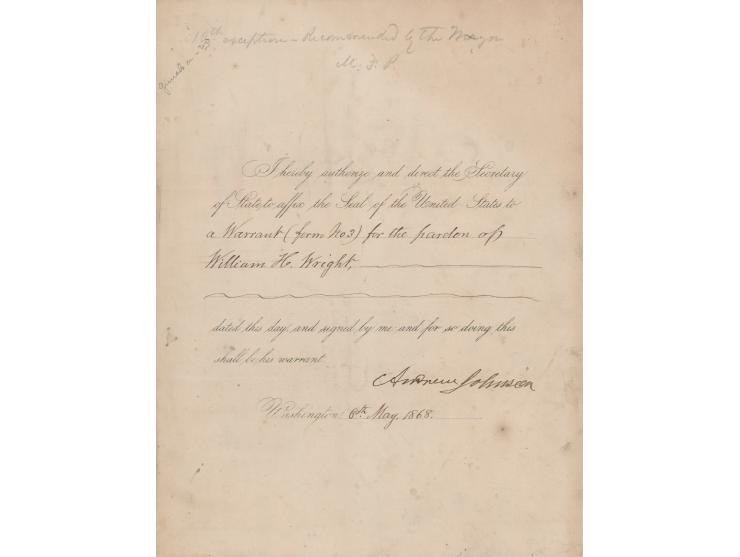 10th exception - Recommended by the Mayor
M. F. P.
I hereby authorize and direct the Secretary
of State to affix the Seal of the United States to
a Warrant (form No 3) for the pardon of
William H. Wright,
dated this day, and signed by me and for so doing this
shall be his warrant.
Andrew Johnson
Washington, 6th May, 1868.